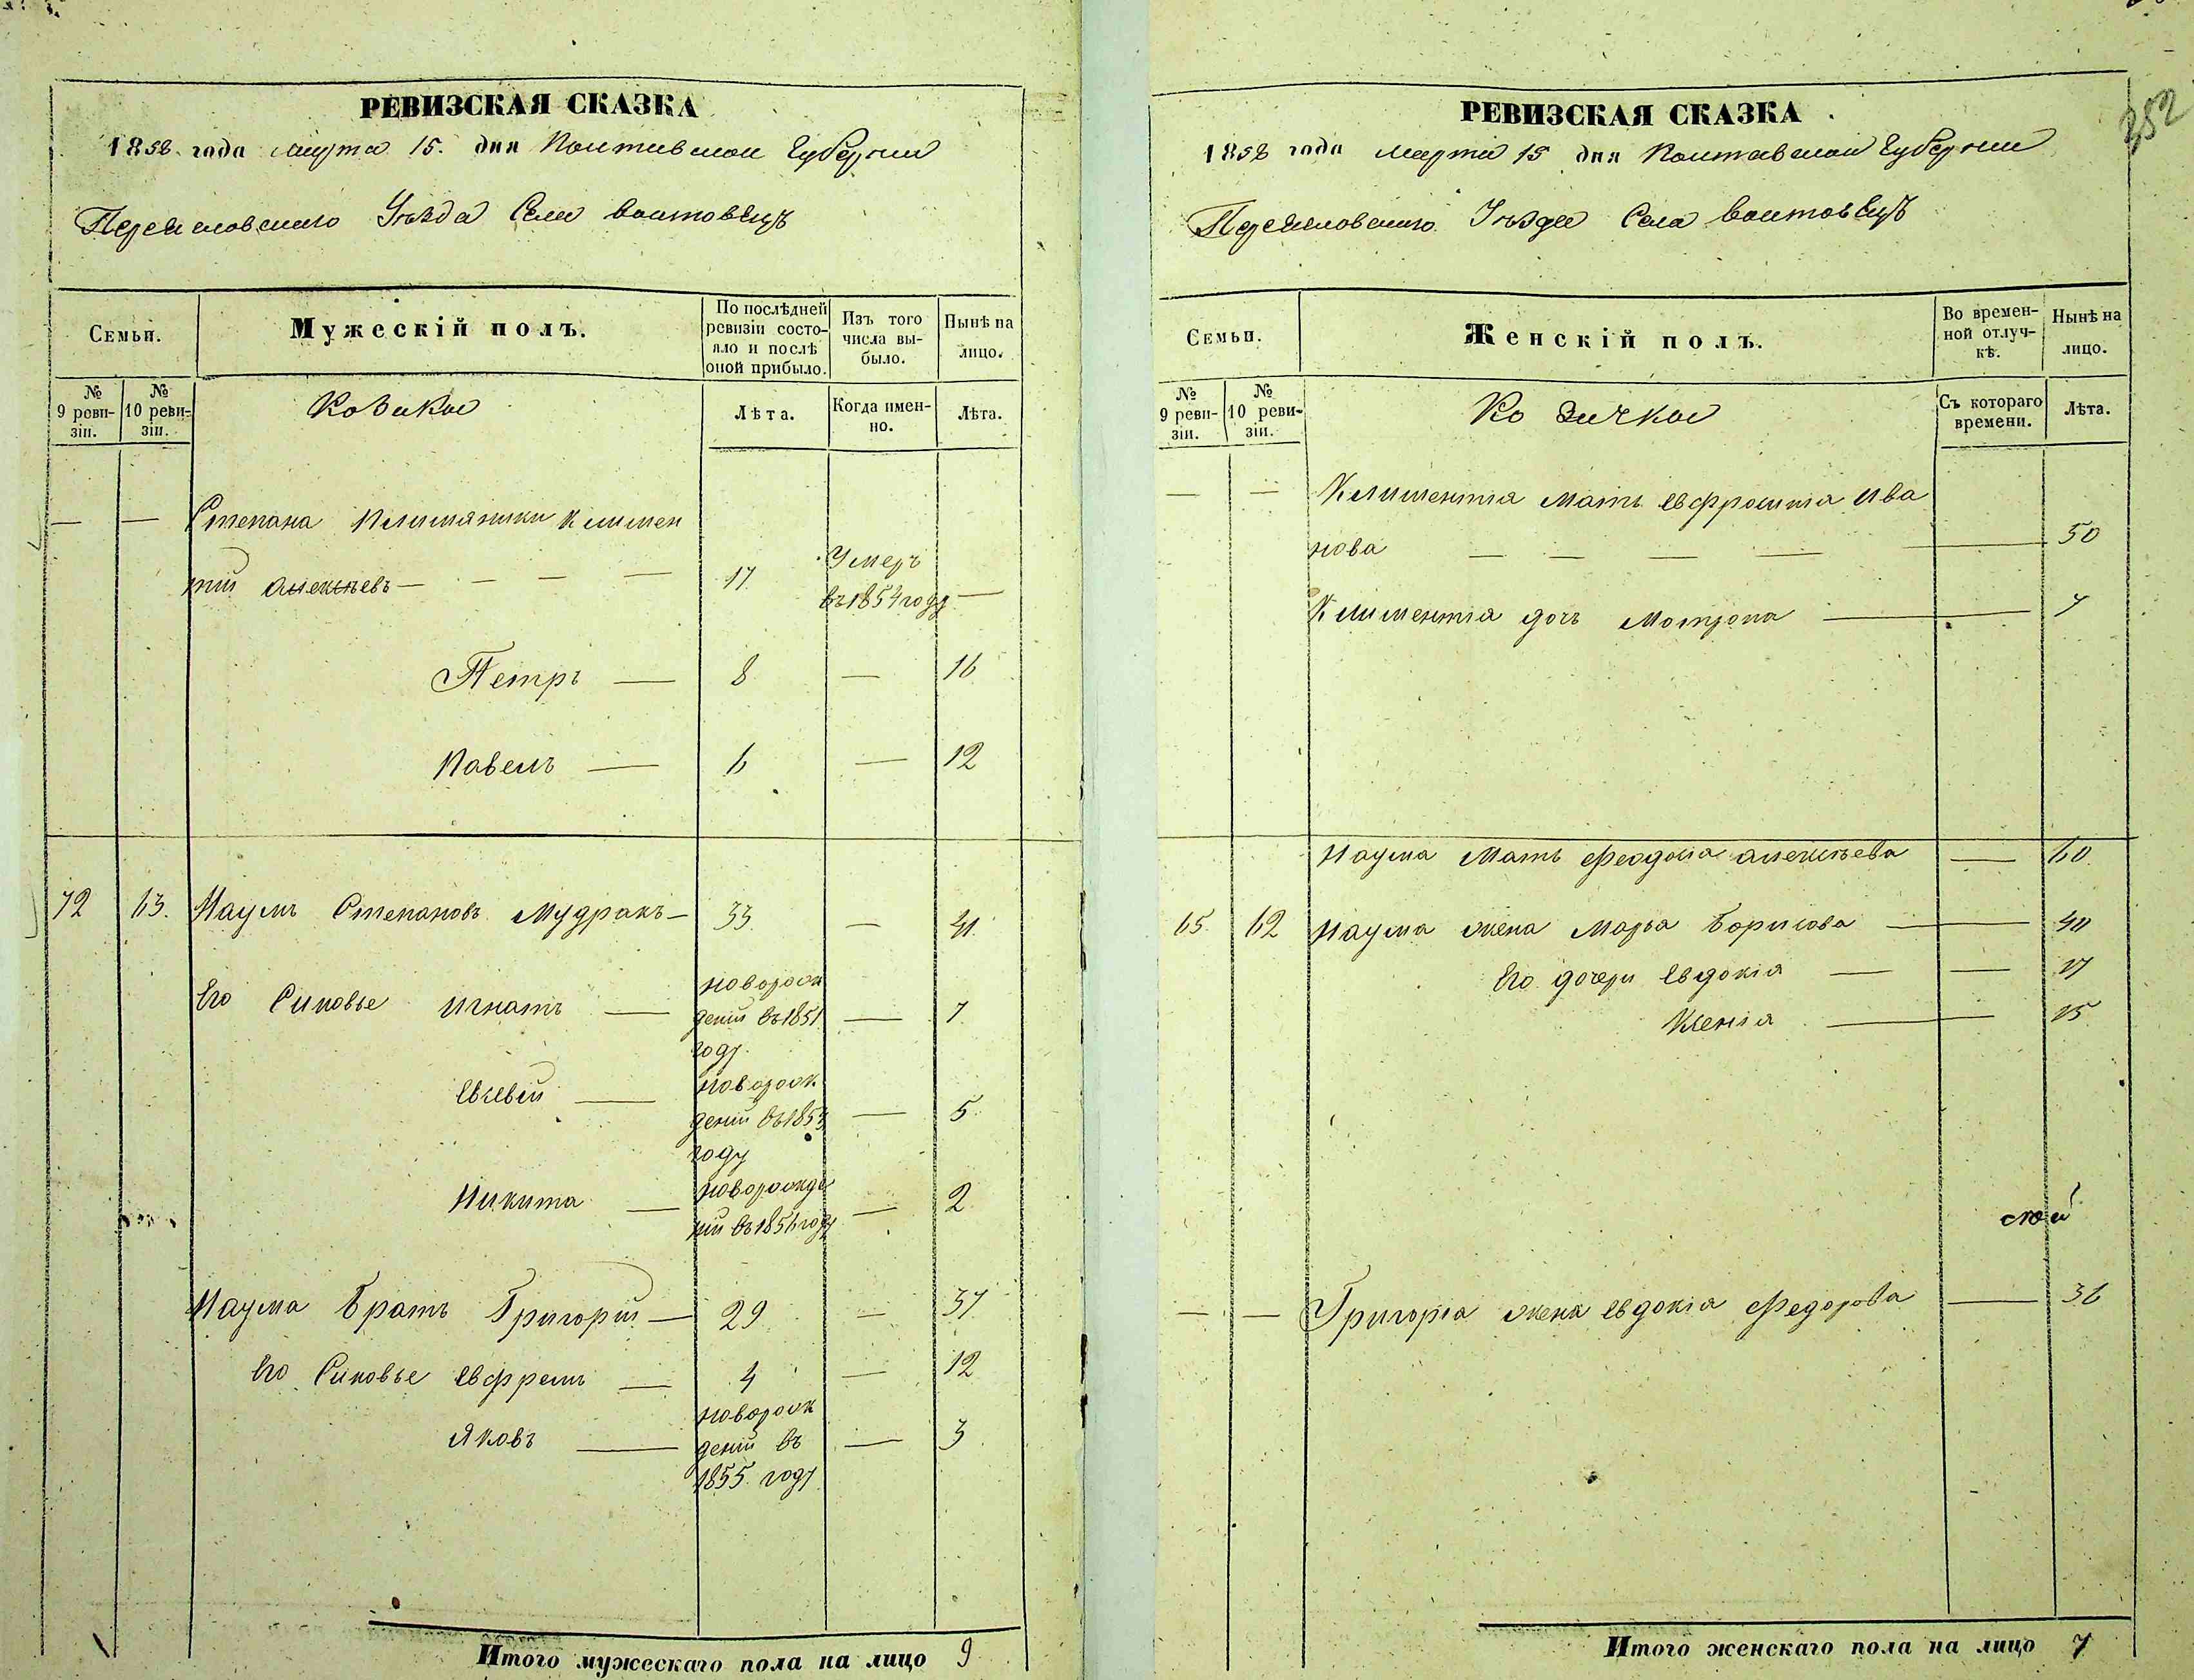 РЕВИЗСКАЯ СКАЗКА
1858 года марта 15. дня Полтавской Губернии
Переяславского Уезда Села Войтовецъ
Семьи.
Мужескій полъ.
По послѣдней ревизіи состояло и послѣ оной прибыло.
Изъ того числа выбыло.
Нынѣ на лицо.
№ 9 ревизіи.
№ 10 ревизіи.
Козаки
Лѣта.
Когда именно.
Лѣта.
— — Степана племянники Климен
тий Алексѣевъ — 17 Умеръ въ 1854 году —
Петръ — 8 — 16
Павелъ — 6 — 12
72 63. Наумъ Степановъ Мудракъ — 33 — 41
Его Сыновье Игнатъ — новорож
дений въ 1851 — 7
году.
Евсевий — новорож
дений въ 1853 — 5
году
Никита — новорожде
ний въ 1856 году — 2
Наума Братъ Григорий — 29 — 37
Его Сыновье Евфремъ — 4 — 12
Яковъ — новорож
дений въ — 3
1855 году
Итого мужескаго пола на лицо 9
252
РЕВИЗСКАЯ СКАЗКА
1858 года марта 15 дня Полтавской Губернии
Переяславского Уезда Села Войтовецъ
Семьи.
Женскій полъ.
Во временной отлучкѣ.
Нынѣ на лицо.
№ 9 ревизіи.
№ 10 ревизіи.
Козачки
Съ котораго времени.
Лѣта.
— — Климентия мать Евфросиния Ива
нова — 50
Климентия дочь Мотрона — 7
Наума Мать Феодосия Алексѣева — 60
65. 62 Наума жена Марья Борисова — 40
Его дочери Евдокія — 17
Ксенія — 15
— — Григорія жена Евдокія Федорова — 36
Итого женскаго пола на лицо 7